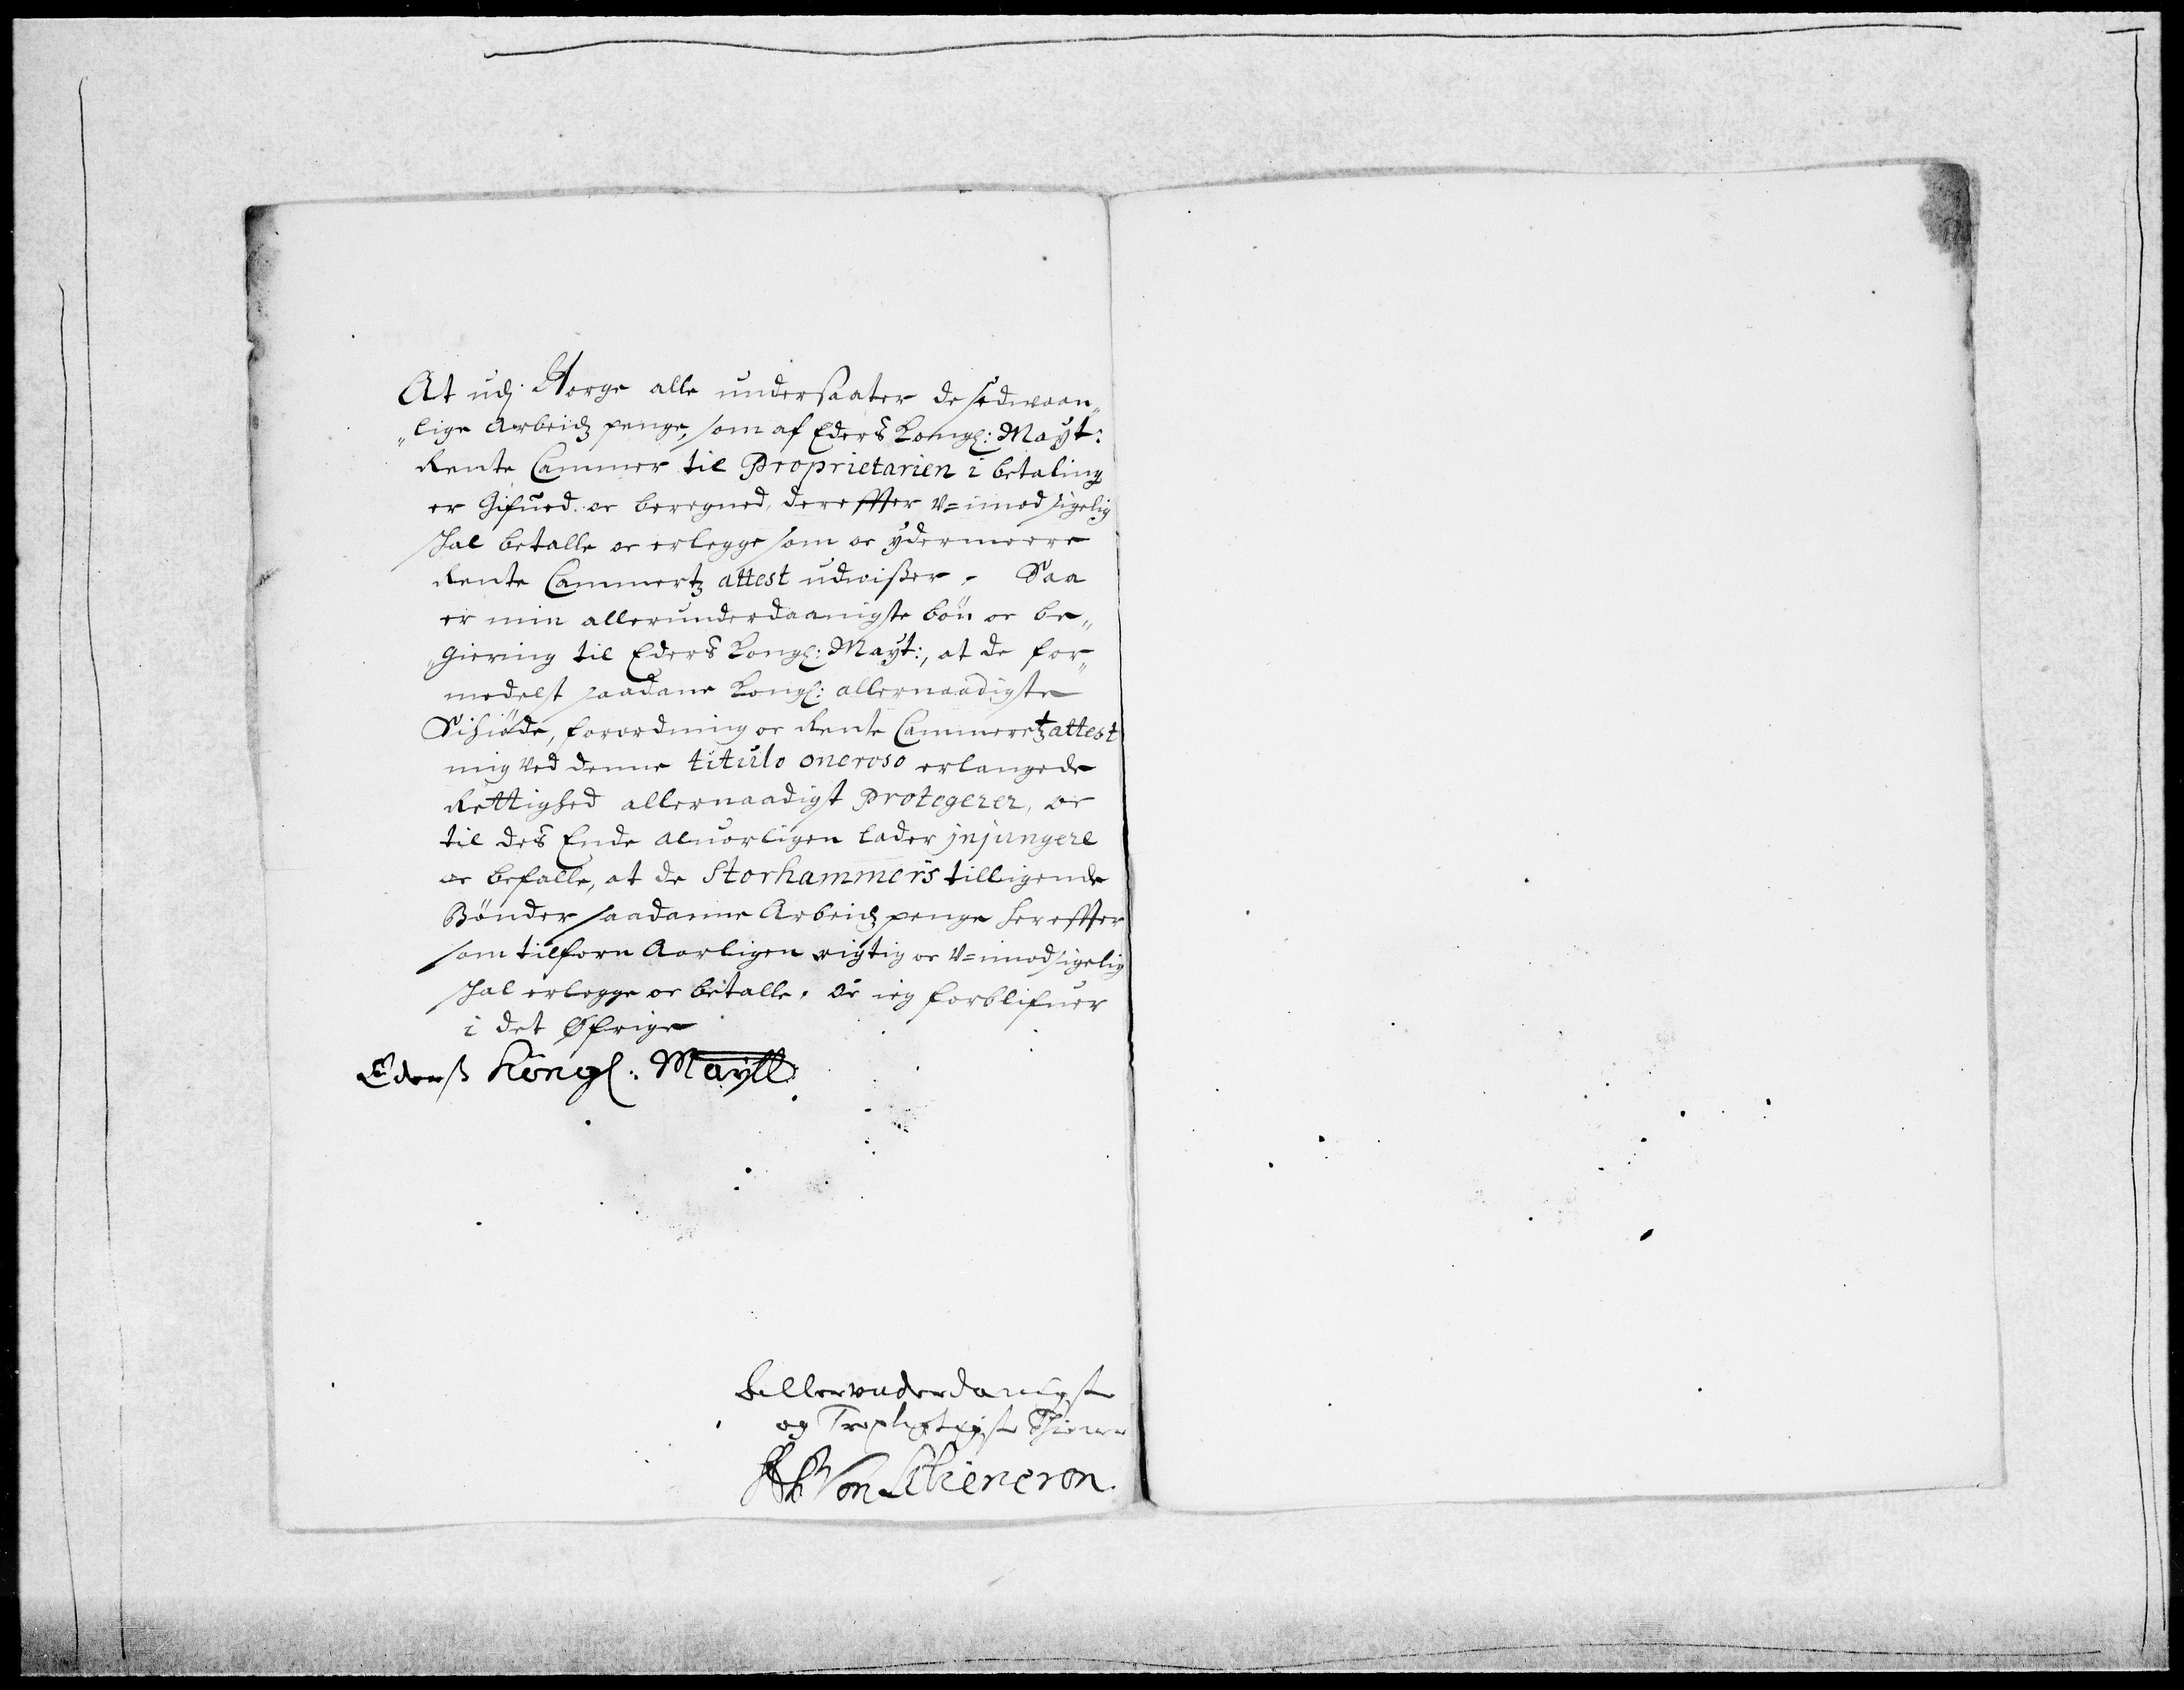 At udj Norge alle undersaater de sedwaan„
„lige Arbeidz penge, som af Eders Kongl: Mayt:
Rente Cammer til Proprietarien i betaling
er Gifued oc beregned, dereffter v=imodsigelig
skal betalle oc erlegge som oc ydermeere
Rente Cammertz attest udwißer, Saa
er min allerunderdaanigste bön oc be„
„giering til Eders Kongl: Mayt:, at de for„
medelst saadane Kongl: allernaadigste
Skiöde, forordning oc Rente Cammeretz attest
mig ved denne titulo oneroso erlangede
Rettighed allernaadigst Protegerer, oc
til des Ende aluorligen lader jnjungere
oc befalle, at de Storhammers tilligende
Bönder saadanne Arbeidz penge hereffter
som tilforn Aarligen rigtig oc v=imodsigelig
skal erlegge oc betalle. Oc ieg forblifuer
i det Øfrige
Ederß Kongl: Maytt:
Allervnderdanigste
og Tropligtigste Thiener
Von Liliencron.